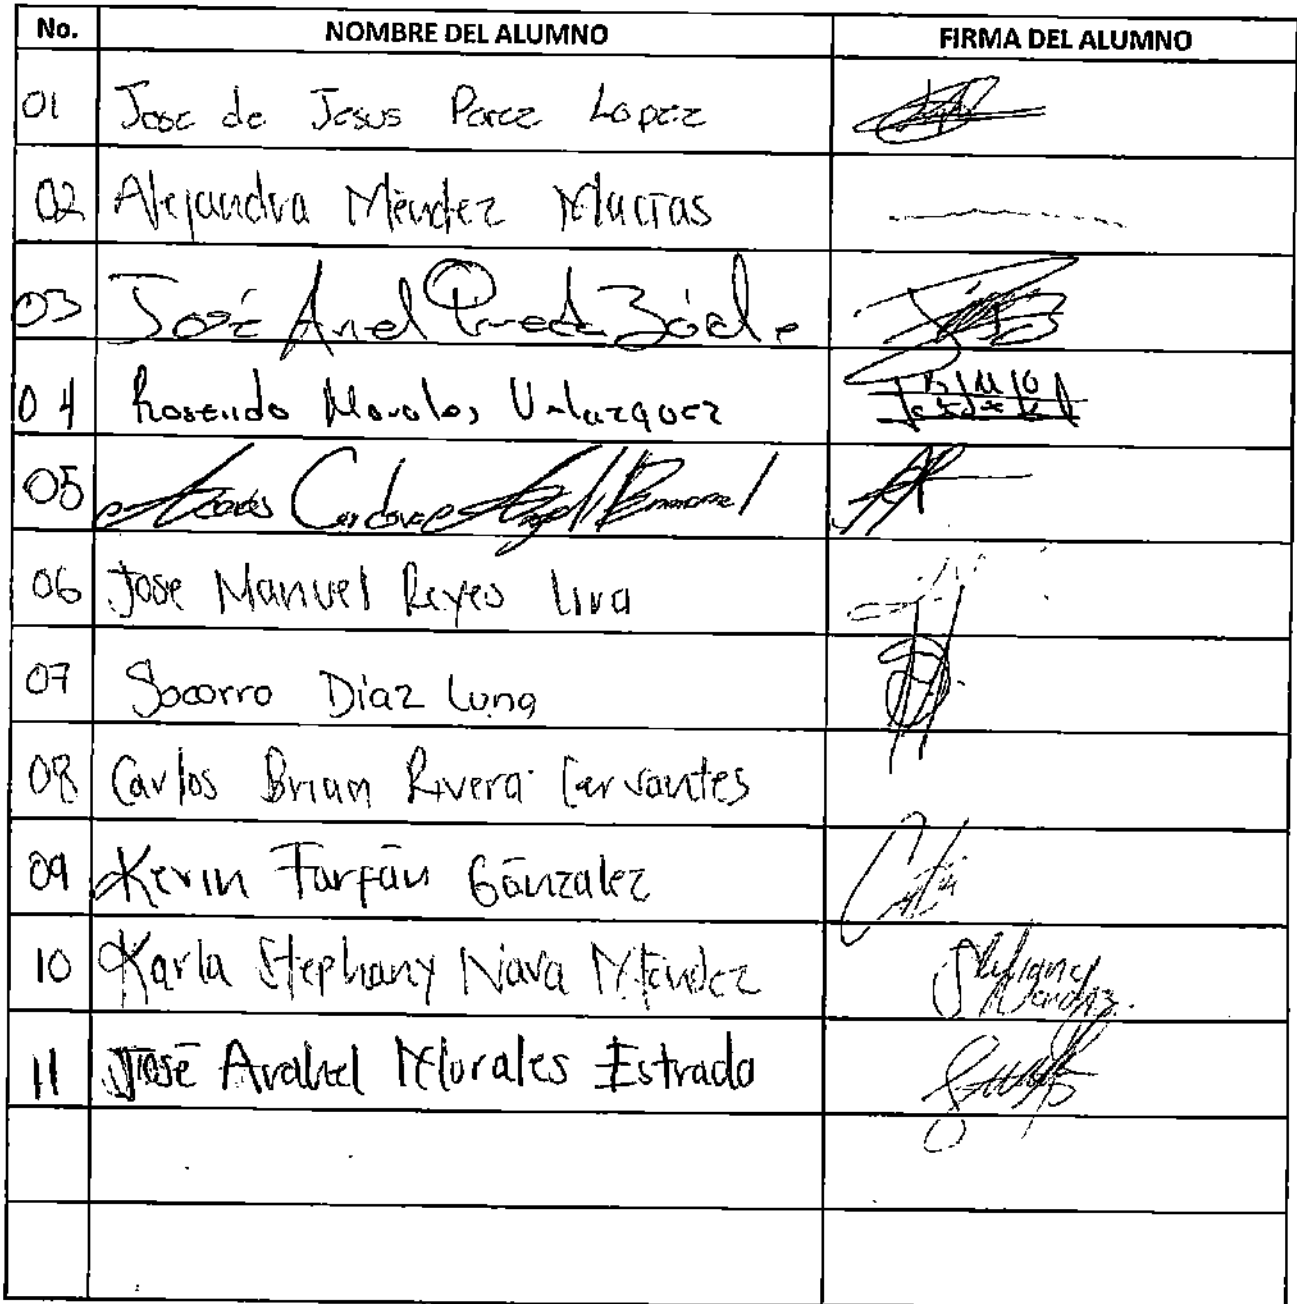 No. NOMBRE DEL ALUMNO FIRMA DEL ALUMNO
01 Jose de Jesus Perez Lopez
02 Alejandra Méndez Macías
03 José Ariel
04 Rosendo Morales Velazquez
05 Cordova Angel Emmanuel
06 Jose Manuel Reyes Liva
07 Socorro Diaz Luna
08 Carlos Brian Rivera Cervantes
09 Kevin Farfán Gónzalez
10 Karla Stephany Nava Méndez
11 José Arahel Morales Estrada